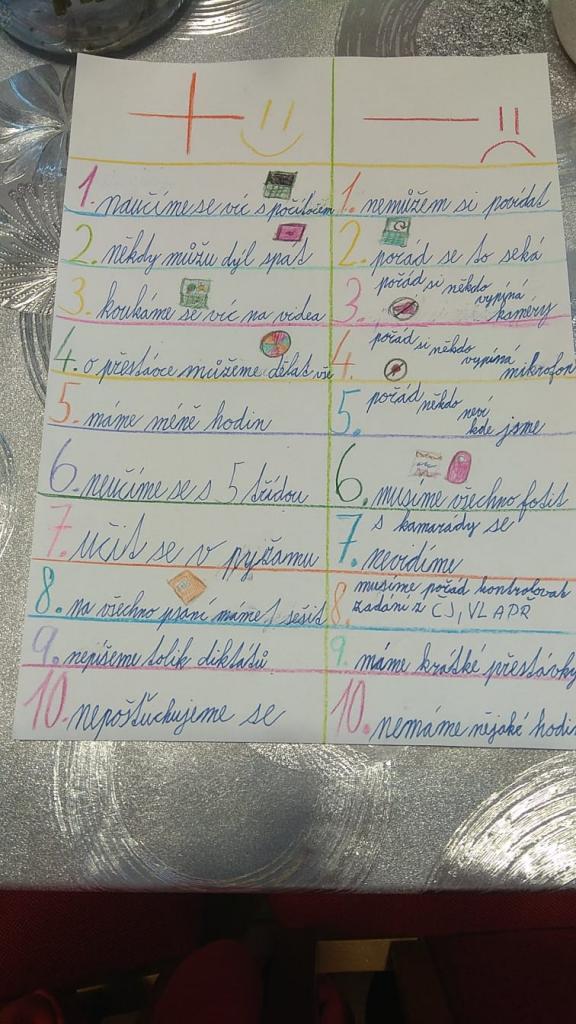 1. naučíme se víc s počítačem
2. někdy můžu dýl spát
3. koukáme se víc na videa
4. o přestávce můžeme dělat vše
5. máme méně hodin
6. neučíme se s 5 třídou
7. učit se v pyžamu
8. na všechno psaní máme 1 sešit
9. nepíšeme tolik diktátů
10. nepošťuchujeme se
1. nemůžem si povídat
2. pořád se to seká
3. pořád si někdo vypíná kaméry
4. pořád si někdo vypíná mikrofon
5. pořád někdo neví kde jsme
6. musíme všechno fotit
7. s kamarády se
nevidíme
8. musíme pořád kontrolovat
zadání z ČJ, VL A PŘ
9. máme krátké přestávky
10. nemáme nějaké hodin